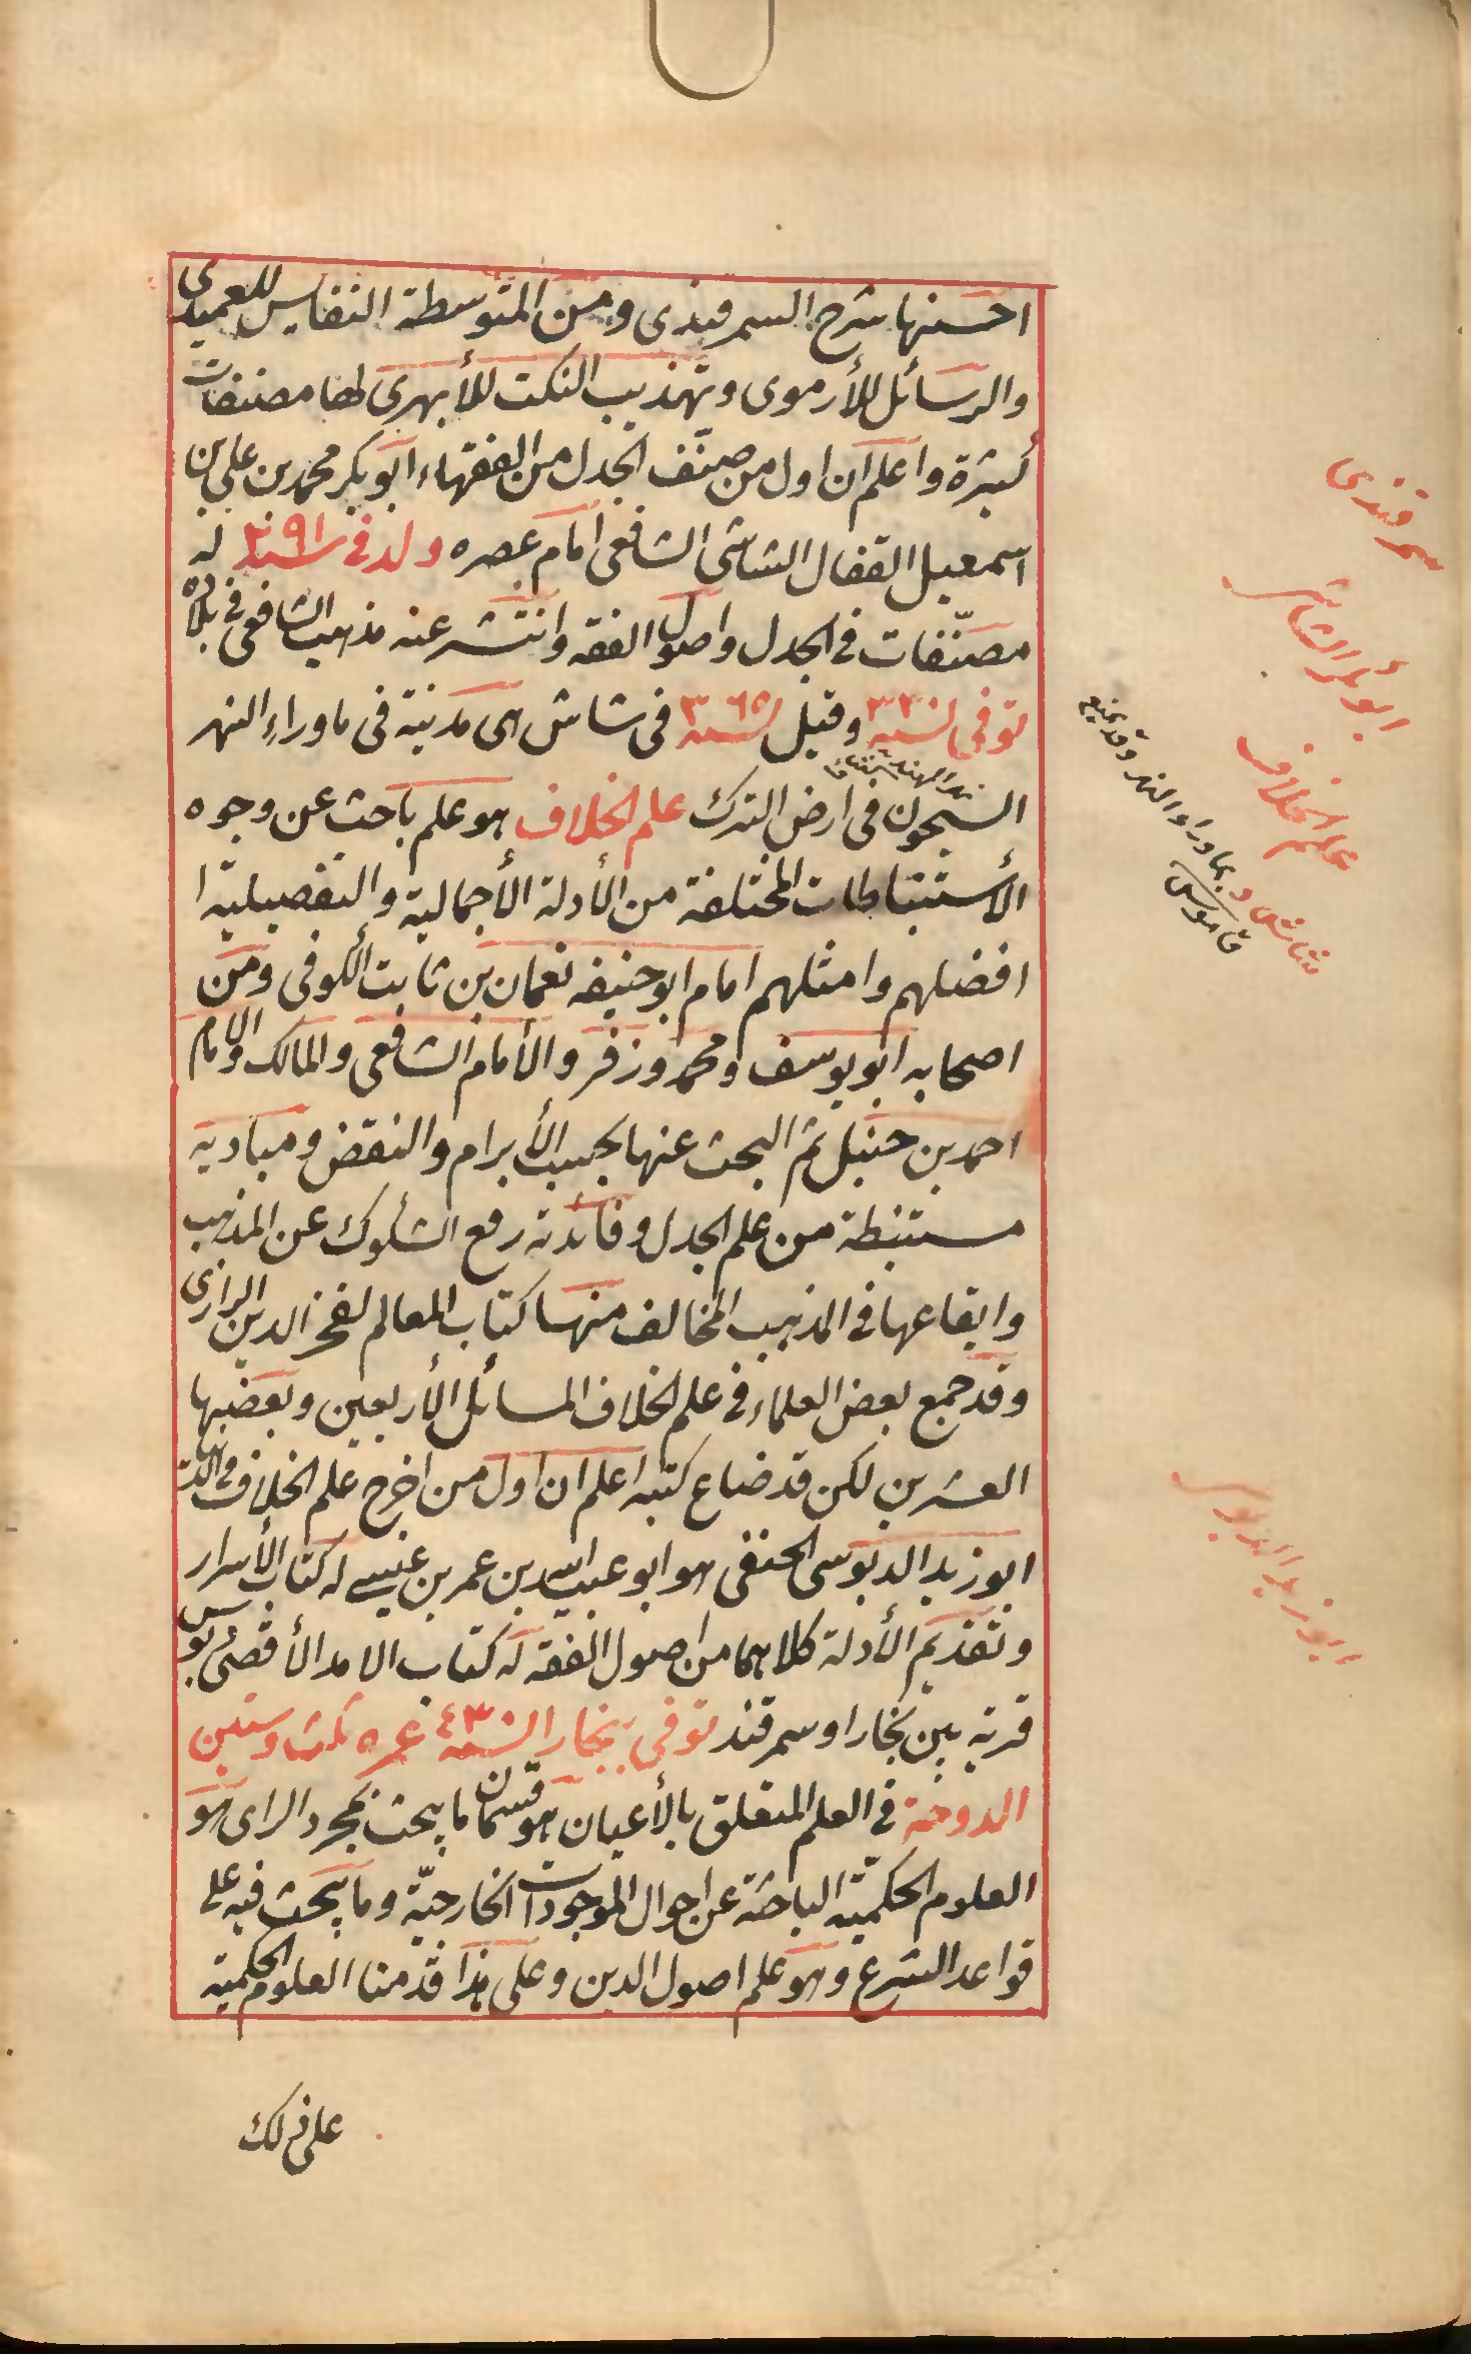 احسنها شرح السمرقندى ومن المتوسطة النفايس للعميدى
والرسائل للأرموى وتهذيب النكت للأبهرى لهما مصنفات
كثيرة واعلم ان اول من صنّف الجدل من الفقهاء ابو بكر محمد بن على بن
اسمعيل القفال الشاشى الشافعى امام عصره ولد فى سنة ٢٩١ له
مصنّفات فى الجدل واصول الفقه وانتشر عنه مذهب الشافعى فى بلاده
توفى سنة ٣٣٠ وقيل سنة ٣٦٥ فى شاش هى مدينة فى ماوراء النهر
السيحون فى ارض الترك علم الخلاف هو علم باحث عن وجوه
الأستنباطات المختلفة من الأدلة الأجمالية والتفصيلية ا
افضلهم وامثلهم امام ابو حنيفه نعمان بن ثابت الكوفى ومن
اصحابه ابو يوسف ومحمد وزفر والأمام الشافعى والمالك والامام
احمد بن حنبل ثم البحث عنها بحسب الأبرام والنقض ومباديه
مستنبطة من علم الجدل وفائدته رفع الشكوك عن المذهب
وايقاعها فى المذهب المخالف منها كتاب المعالم لفخر الدين الرازى
وقد جمع بعض العلماء فى علم الخلاف المسائل الأربعين وبعضها
العشرين لكن قد ضاع كتبه اعلم ان اول من اخرج علم الخلاف فى الدنيا
ابو زيد الدبوسى الحنفى هو ابو عبيد الله بن عمر بن عيسى له كتاب الأسرار
وتقديم الأدلة كلاهما من اصول الفقه له كتاب الامد الأقصى دبوس
قرية بين بخارا وسمرقند توفى ببخارا سنة ٤٣٠ عمره ثلث وستين
الدوحة فى العلم المتعلق بالأعيان هو قسمان ما يبحث بمجرد الراى هو
العلوم الحكميّة الباحثة عن احوال الموجودات الخارجيّة وما يبحث فيه على
قواعد الشرع وهو علم اصول الدين وعلى هذا قدمنا العلوم الحكمية
على ذلك
سمرقندى
ابو بكر الشاشى
علم الخلاف
شاش د بماوراء النهر وقد يمنع
قاموس
ابو زيد الدبوسى